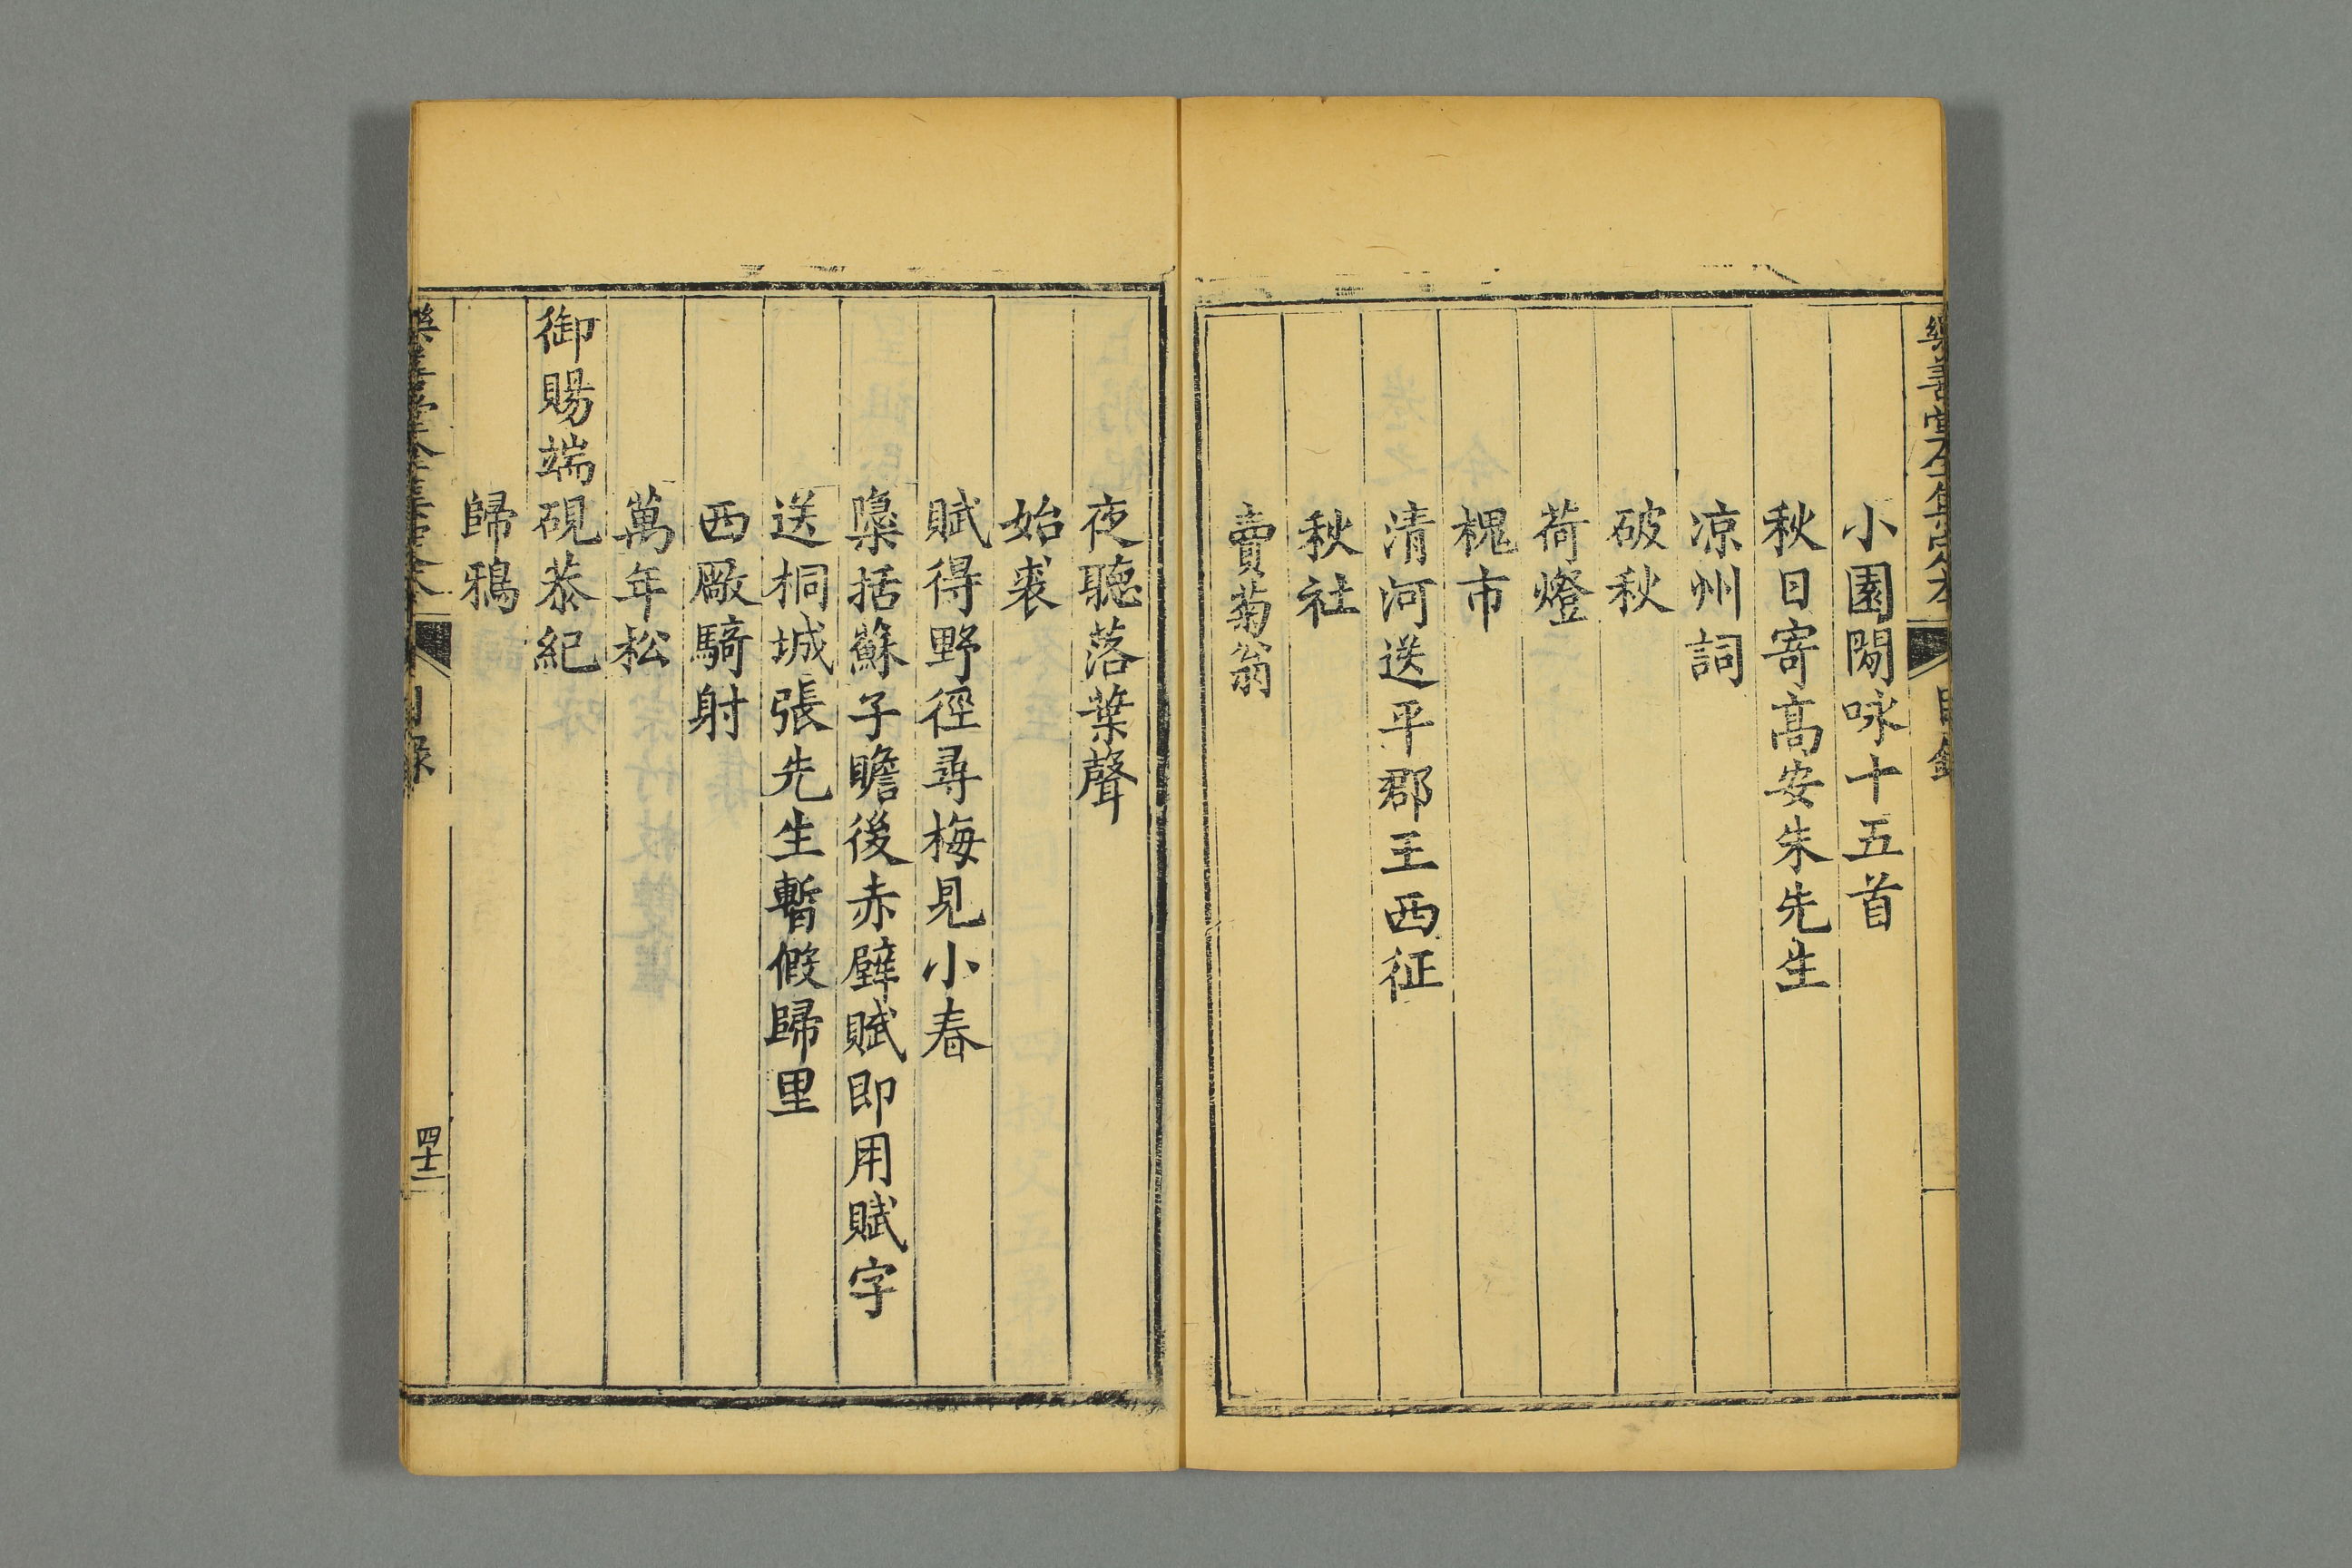 樂善堂全集定本 目錄
小園閒咏十五首
秋日寄高安朱先生
凉州詞
破秋
荷燈
槐市
清河送平郡王西征
秋社
賣菊翁
夜聽落葉聲
始裘
賦得野徑尋梅見小春
檃括蘇子瞻後赤壁賦即用賦字
送桐城張先生暫假歸里
西厰騎射
萬年松
御賜端硯恭紀
歸鴉
樂善堂全集定本 目錄 四十二